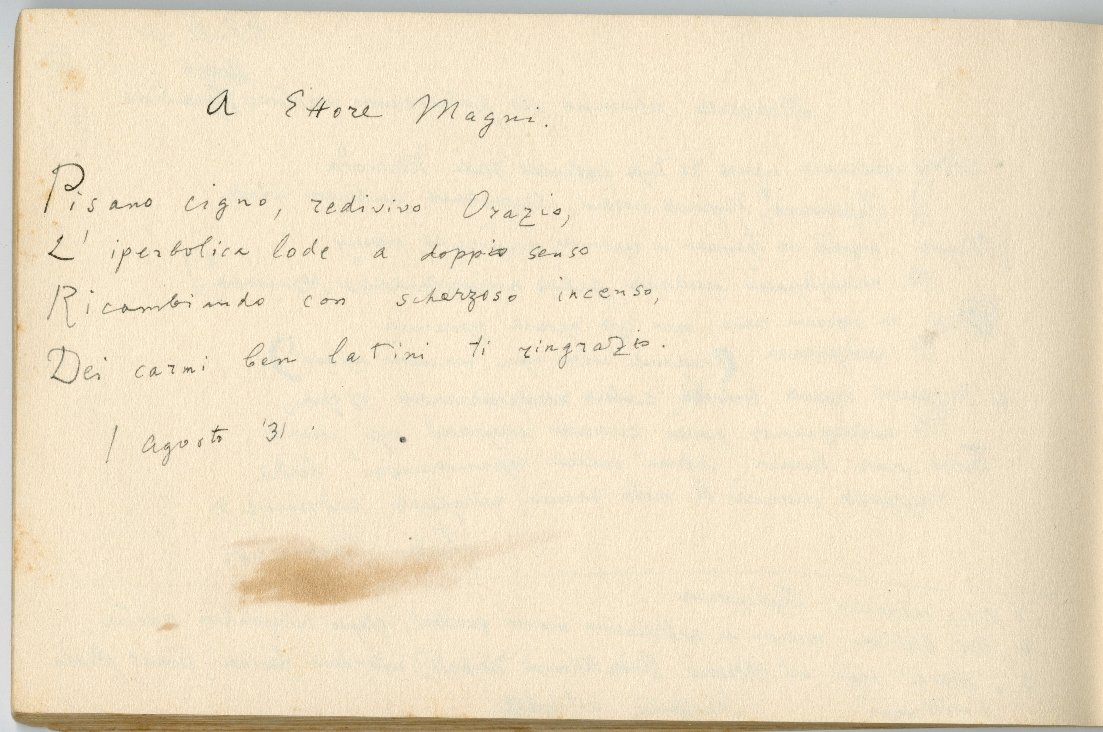 A Ettore Magni.
Pisano cigno, redivivo Orazio,
L' iperbolica lode a doppio senso
Ricambiando con scherzoso incenso,
Dei carmi ben latini ti ringrazio.
1 agosto '31.